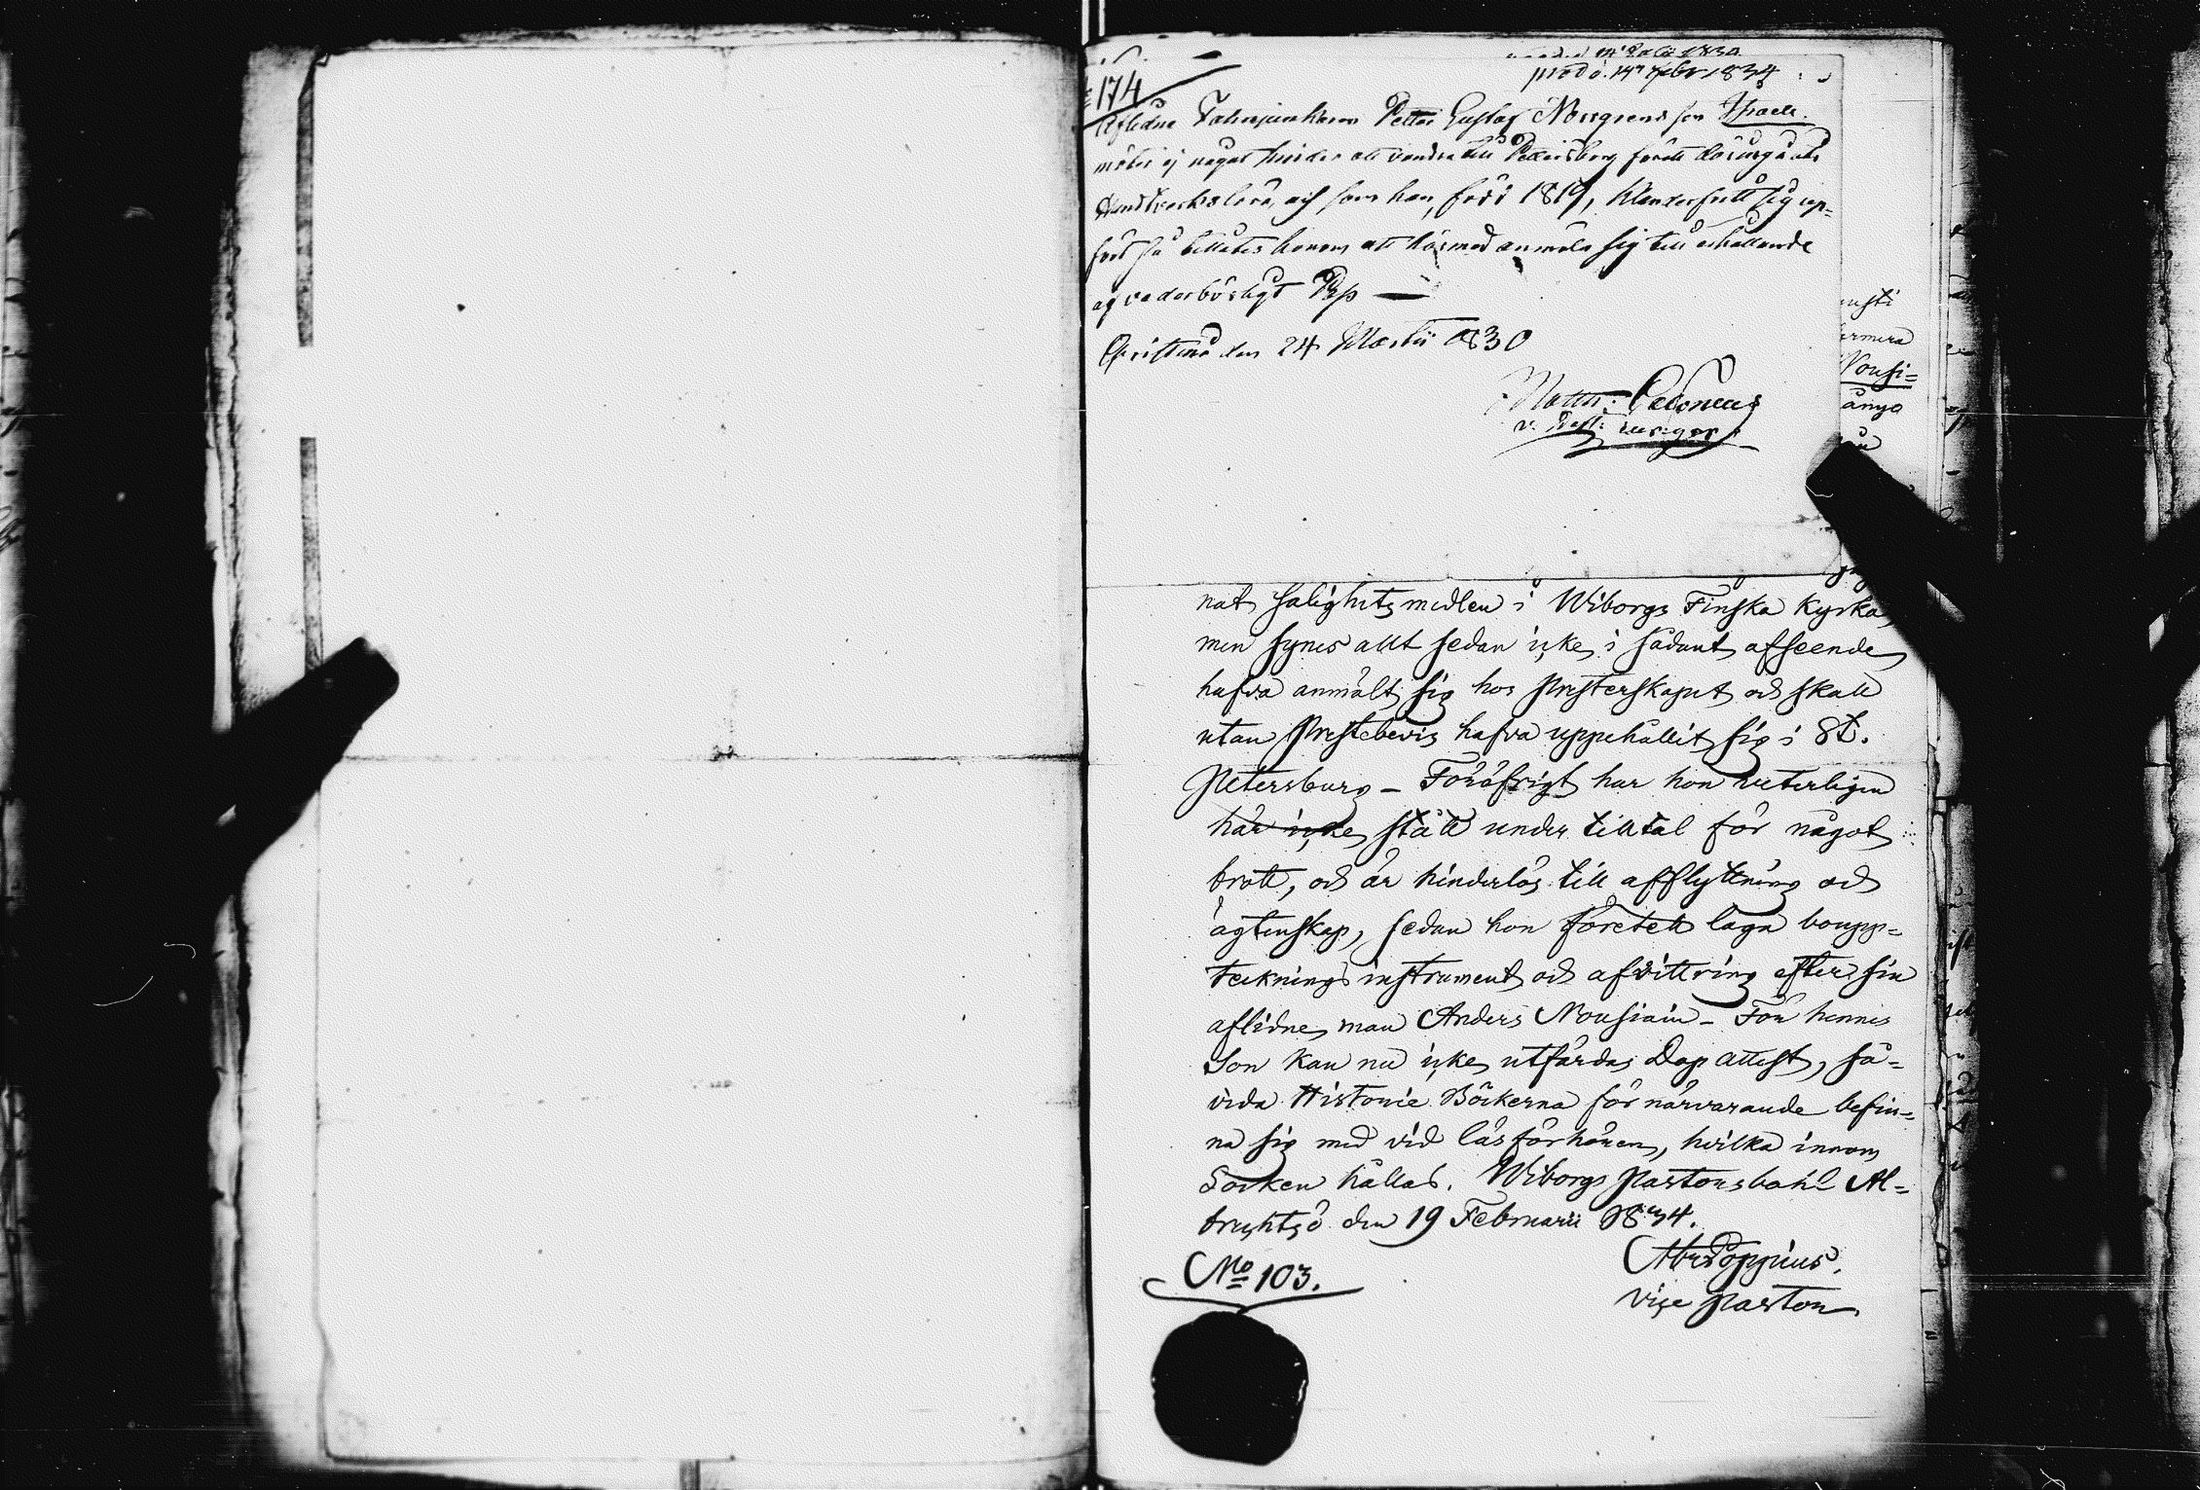 174
prod. d. 14 Febr 1834
Aflidne Fahnjunkaren Petter Gustaf Norrgrens son Israel
möter ej något hinder att vandra till Petersborg för att därsturgå uti
Handtverkslära, och som han, född 1819, klanderfritt sig upp=
fört så tillåtes honom att härmed anmäla sig till erhållande
af vederbörligt Pass —
Christina den 24 Martii 1830
nusti
ermera
Nousi=
ånga
nat salighets medlen i Wiborgs Finska Kyrka,
men synes allt sedan icke i sådant afseende
hafva anmält sig hos Presterskapet och skall
utan Prestebevis hafva uppehållit sig i St.
Petersburg – Föröfrigt har hon veterligen
här icke stått under tilltal för något
brott, och är hinderlös till afflyttning och
ägtenskap, sedan hon företett laga boupp=
tecknings instrument och afvittring efter sin
aflidne man Anders Nousiain – För hennes
Son kan nu icke utfärdas Dop attest, så=
vida Historie Böckerna för närvarande befin=
na sig med vid läsförhören, hvilka innom
Socken hållas. Wiborgs Pastorsbohl Al=
brechtsö den 19 Februarii 1834.
Abr Poppius.
Vice Pastor
No 103.